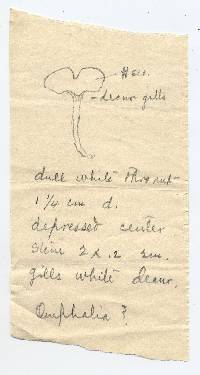 decur gills
dull white
1 1/4 cm d.
depressed center
stem 2 x .2 cm.
gills white decur.
Omphalia ?